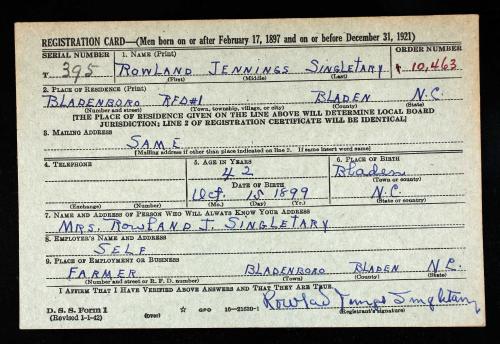 REGISTRATION CARD—(Men born on or after February 17, 1897 and on or before December 31, 1921)
SERIAL NUMBER 1. NAME (Print) ORDER NUMBER
T 395 ROWLAND JENNINGS SINGLETARY 10,463
(First) (Middle) (Last)
2. PLACE OF RESIDENCE (Print)
BLADENBORO RFD#1 BLADEN N.C.
(Number and street) (Town, township, village, or city) (County) (State)
[THE PLACE OF RESIDENCE GIVEN ON THE LINE ABOVE WILL DETERMINE LOCAL BOARD
JURISDICTION; LINE 2 OF REGISTRATION CERTIFICATE WILL BE IDENTICAL]
3. MAILING ADDRESS
SAME
[Mailing address if other than place indicated on line 2. If same insert word same]
4. TELEPHONE 5. AGE IN YEARS 6. PLACE OF BIRTH
42 Bladen
DATE OF BIRTH (Town or county)
Oct. 15 1899 N.C.
(Exchange) (Number) (Mo.) (Day) (Yr.) (State or country)
7. NAME AND ADDRESS OF PERSON WHO WILL ALWAYS KNOW YOUR ADDRESS
MRS. ROWLAND J. SINGLETARY
8. EMPLOYER'S NAME AND ADDRESS
SELF
9. PLACE OF EMPLOYMENT OR BUSINESS
FARMER BLADENBORO BLADEN N.C.
(Number and street or R. F. D. number) (Town) (County) (State)
I AFFIRM THAT I HAVE VERIFIED ABOVE ANSWERS AND THAT THEY ARE TRUE.
D. S. S. Form 1 Singletary
(Revised 1-1-42) (over) ☆ GPO 16—21630-1 (Registrant's signature)